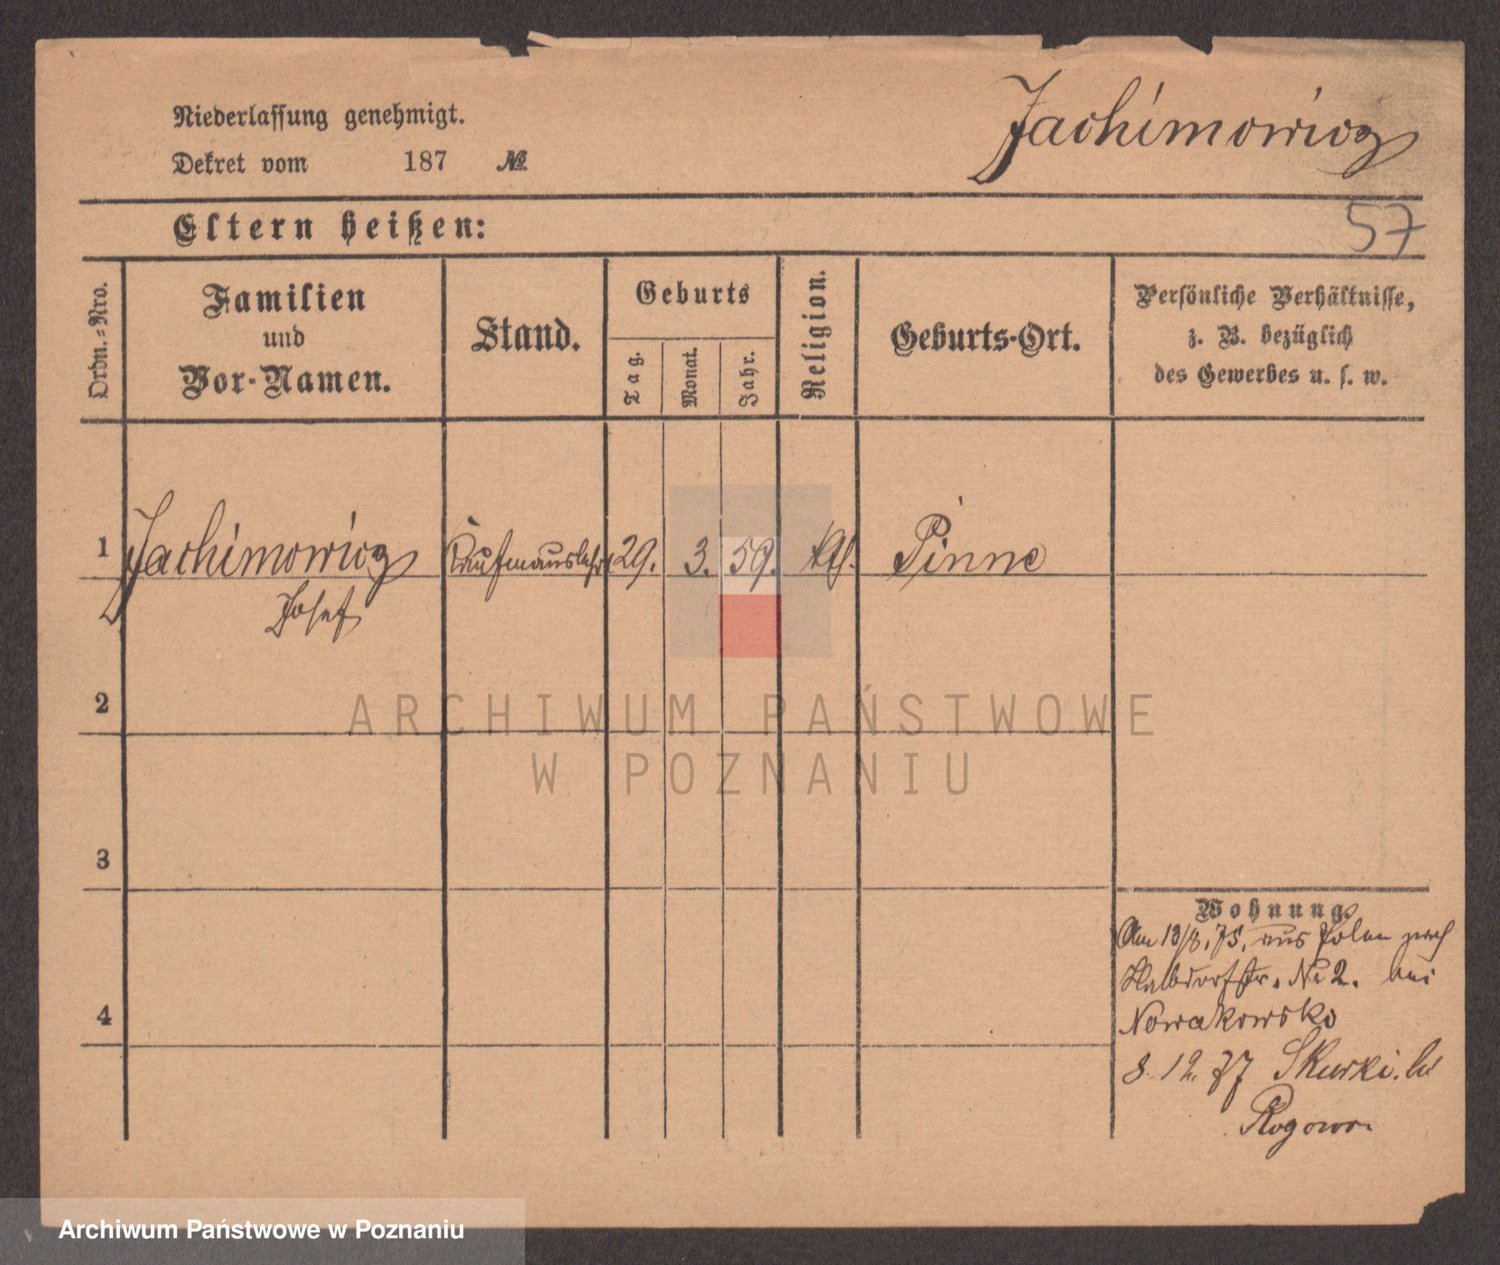 Jachimowicz
Niederlassung genehmigt.
Dekret vom 187 №
57
Eltern heißen:
Ordn.-Nro.
Familien
und
Vor-Namen.
Stand.
Geburts
Tag.
Monat.
Jahr.
Religion.
Geburts-Ort.
Persönliche Verhältnisse,
z. B. bezüglich
des Gewerbes u. s. w.
1 Jachimowicz Kaufmannslehrl 29. 3. 59. kth. Pinne
Josef
2
ARCHIWUM PAŃSTWOWE
W POZNANIU
3
Wohnung.
Am 13/8. 75. aus Polen nach
Halbdorfstr. No 2. bei
4
Nowakowsko
8. 12. 77 Skurki. bei
Rogowo
Archiwum Państwowe w Poznaniu